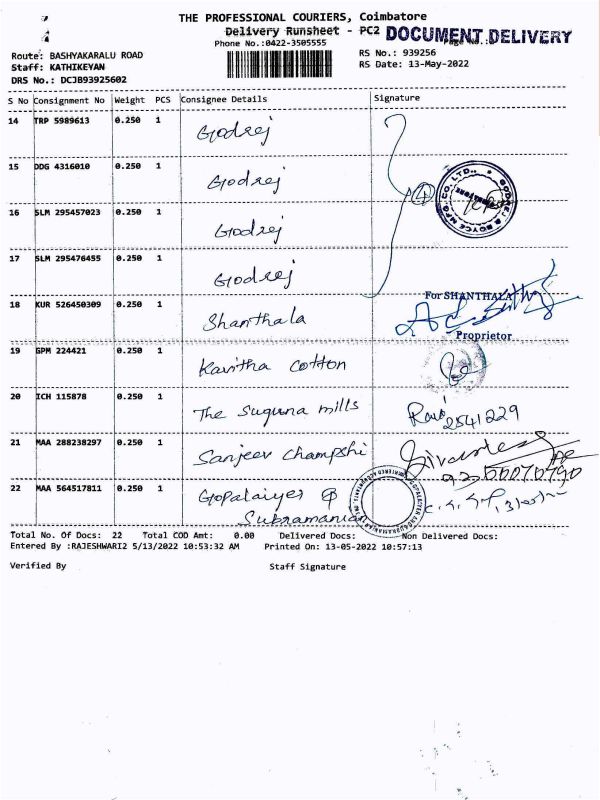 THE PROFESSIONAL COURIERS, Coimbatore
Delivery Runsheet - PC2 DOCUMENT DELIVERY
Phone No.:0422-3505555
Route: BASHYAKARALU ROAD
RS No.: 939256
Staff: KATHIKEYAN
RS Date: 13-May-2022
DRS No.: DCJB93925602
S No Consignment No Weight PCS Consignee Details Signature
14 TRP 5989613 0.250 1 Godrej
15 DDG 4316010 0.250 1 Godrej
16 SLM 295457023 0.250 1 Godrej
④
GODREJ & BOYCE MFG. CO. LTD.,
17 SLM 295476455 0.250 1 Godrej
For SHANTHALA
18 KUR 526450309 0.250 1 Shanthala
Proprietor
19 GPM 224421 0.250 1 Kavitha Cotton
20 ICH 115878 0.250 1 The Suguna mills
2541229
21 MAA 288238297 0.250 1 Sanjeev Champshi
22 MAA 564517811 0.250 1 Gopalaiyer @
Subramanian
Total No. Of Docs: 22 Total COD Amt: 0.00 Delivered Docs: Non Delivered Docs:
Entered By :RAJESHWARI2 5/13/2022 10:53:32 AM Printed On: 13-05-2022 10:57:13
Verified By Staff Signature